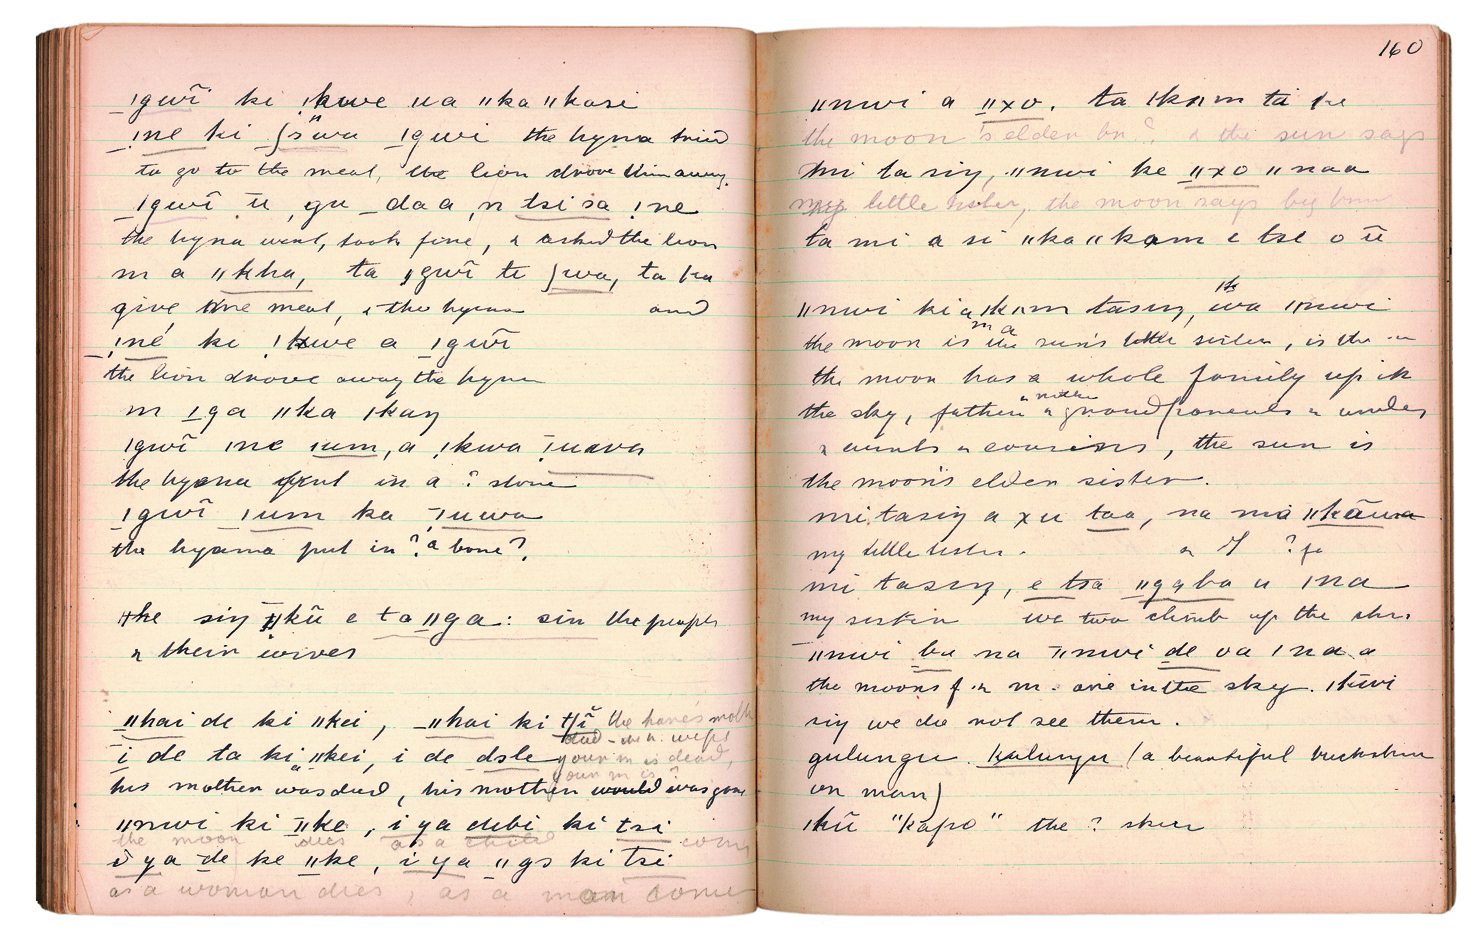 ˌgwĩ ki ǃkuwe ua ǁka ǁkasi
ǃne ki ʃsuwa ǀgwi the hyna tried
to go to the meat, the lion drove him away.
ǀgwĩ ū gu daa, n tsi sa ǃne
the hyna went, took fire, & asked the lion
m a ǁkha, ta ǀgwĩ te ʃwa, ta ka
give me meat, & the hyena and
ǃné ki ǃkuwe a ǀgwĩ
the lion drove away the hyna
m ǀga ǁka ǀkay
ǀgwĩ ǀne ǀum, a ǃkwa ǀuava
the hyena put in a ? stone
ǀgwĩ ǀum ka ǀuuwa
the hyaena put in ? a bone ?,
ǂhe siŋ ǁkũ e ta ǁga: sin the people
& their wives
ǁhai de ki ǁkei, ǁhai ki the hare's moth
dead - the h. wept
i de ta ki ǁkei, i de dsle your m is dead,
your m is
his mother was dead, his mother would was gone
ǁnwi ki ǁke, i ya debi ki tsi
the moon dies as a child comes
i ya de ke ǁke, i ya ǁgs ki tsi
as a woman dies, as a man come
160
ǁnwi a ǁxo. ta ǀkam ta ke
the moon 's elder br? & the sun says
mi ta siŋ, ǁnwi ke ǁxo ǁnaa
my little sister, the moon says big brw
ta mi a si ǁka ǁkam e tse o ū
ǁnwi ki a ǀkam tasiŋ, iwa ǁnwi
the moon is the sun's little sister, is the
the moon has a whole family up in
the sky, father & mother & grandparents & uncles
& aunts & cousins, the sun is
the moon's elder sister.
mi tasiŋ a xu taa, na ma ǁkāuwa
my little sister. & I ? fo
mi tasiŋ, e tsa ǁgaba u ǀna
my sister we two climb up the sky
ǁnwi ba na ǁnwi de oa ǀnaa
the moons f & m. are in the sky. ǀkwi
siŋ we do not see them.
gulungu. kulungu (a beautiful buckskin
on man)
ǀkũ "kapo" the ? skin